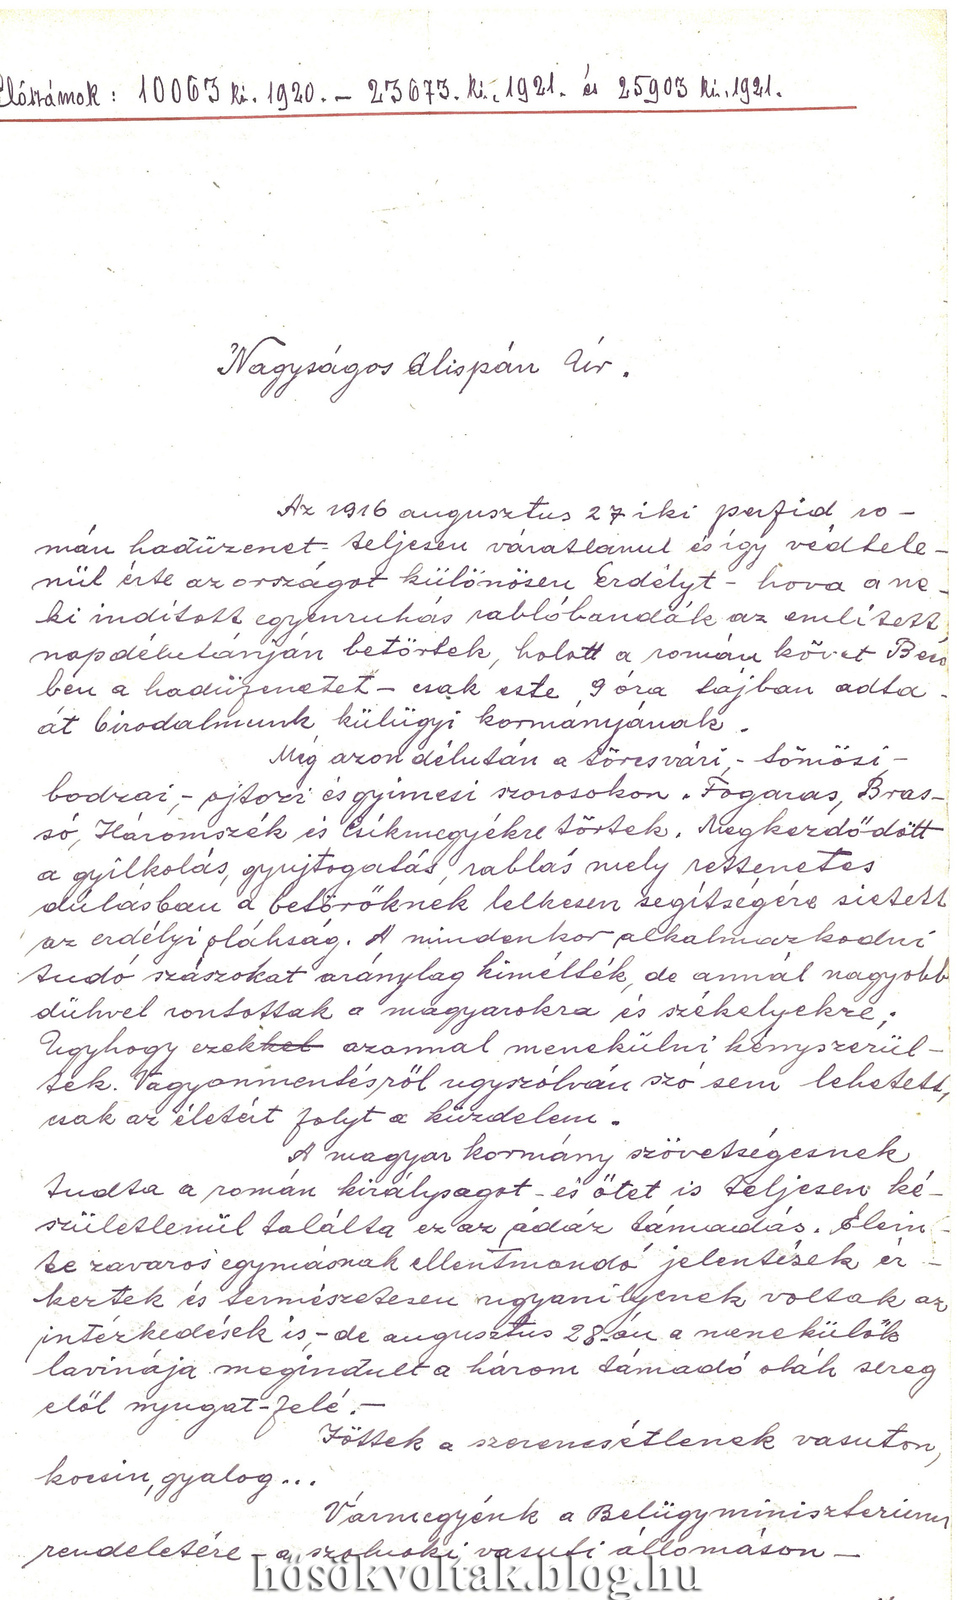 Előszámok: 10063 ki. 1920. – 23673. ki., 1921. és 25903 ki. 1921.
Nagyságos Alispán Úr.
Az 1916 augusztus 27 iki perfid ro-
mán hadüzenet teljesen váratlanul és így védtele-
nül érte az országot különösen Erdélyt – hova a ne-
ki indított egyenruhás rablóbandák az említett
nap délutánján betörtek, holott a román követ Bécs
ben a hadüzenetet – csak este 9 óra tájban adta
át birodalmunk külügyi kormányának.
Még azon délután a törcsvári, – tömösi –
bodzai, – ojtozi és gyimesi szorosokon. Fogaras, Bras-
só, Háromszék és Csíkmegyékre törtek. Megkezdődött
a gyilkolás, gyujtogatás, rablás mely rettenetes
dulásban a betörőknek lelkesen segítségére sietett
az erdélyi oláhság. A mindenkor alkalmazkodni
tudó szászokat aránylag kimélték, de annál nagyobb
dühvel rontottak a magyarokra és székelyekre;
Ugyhogy ezek azonnal menekülni kényszerül-
tek. Vagyonmentésről ugyszólván szó sem lehetett,
csak az életért folyt a küzdelem.
A magyar kormány szövetségesnek
tudta a román királyságot – és őtet is teljesen ké-
születlenül találta ez az ádáz támadás. Elein-
te zavaros egymásnak ellentmondó jelentések ér-
keztek és természetesen ugyanilyenek voltak az
intézkedések is, – de augusztus 28-án a menekülők
lavinája megindult a három támadó oláh sereg
elől nyugat-felé. –
Jöttek a szerencsétlenek vasuton,
kocsin, gyalog...
Vármegyénk a Belügyminiszterium
rendeletére – a szolnoki vasuti állomáson –
hősökvoltak.blog.hu